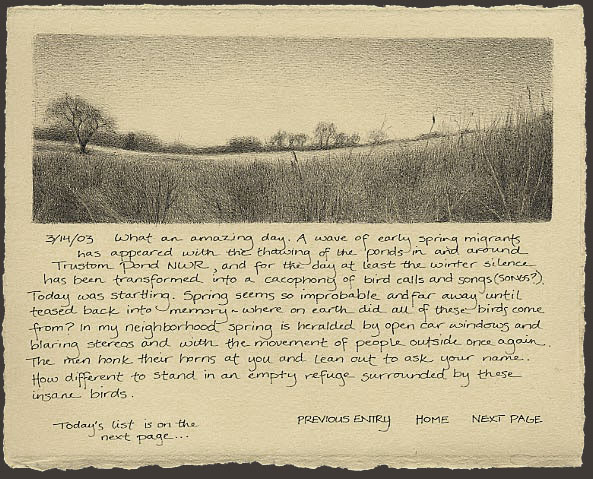 3/14/03 What an amazing day. A wave of early spring migrants
has appeared with the thawing of the ponds in and around
Trustom Pond NWR, and for the day at least the winter silence
has been transformed into a cacophony of bird calls and songs (SONGS?).
Today was startling. Spring seems so improbable and far away until
teased back into memory ~ where on earth did all of these birds come
from? In my neighborhood spring is heralded by open car windows and
blaring stereos and with the movement of people outside once again.
The men honk their horns at you and lean out to ask your name.
How different to stand in an empty refuge surrounded by these
insane birds.
Today's list is on the
next page...
PREVIOUS ENTRY HOME NEXT PAGE